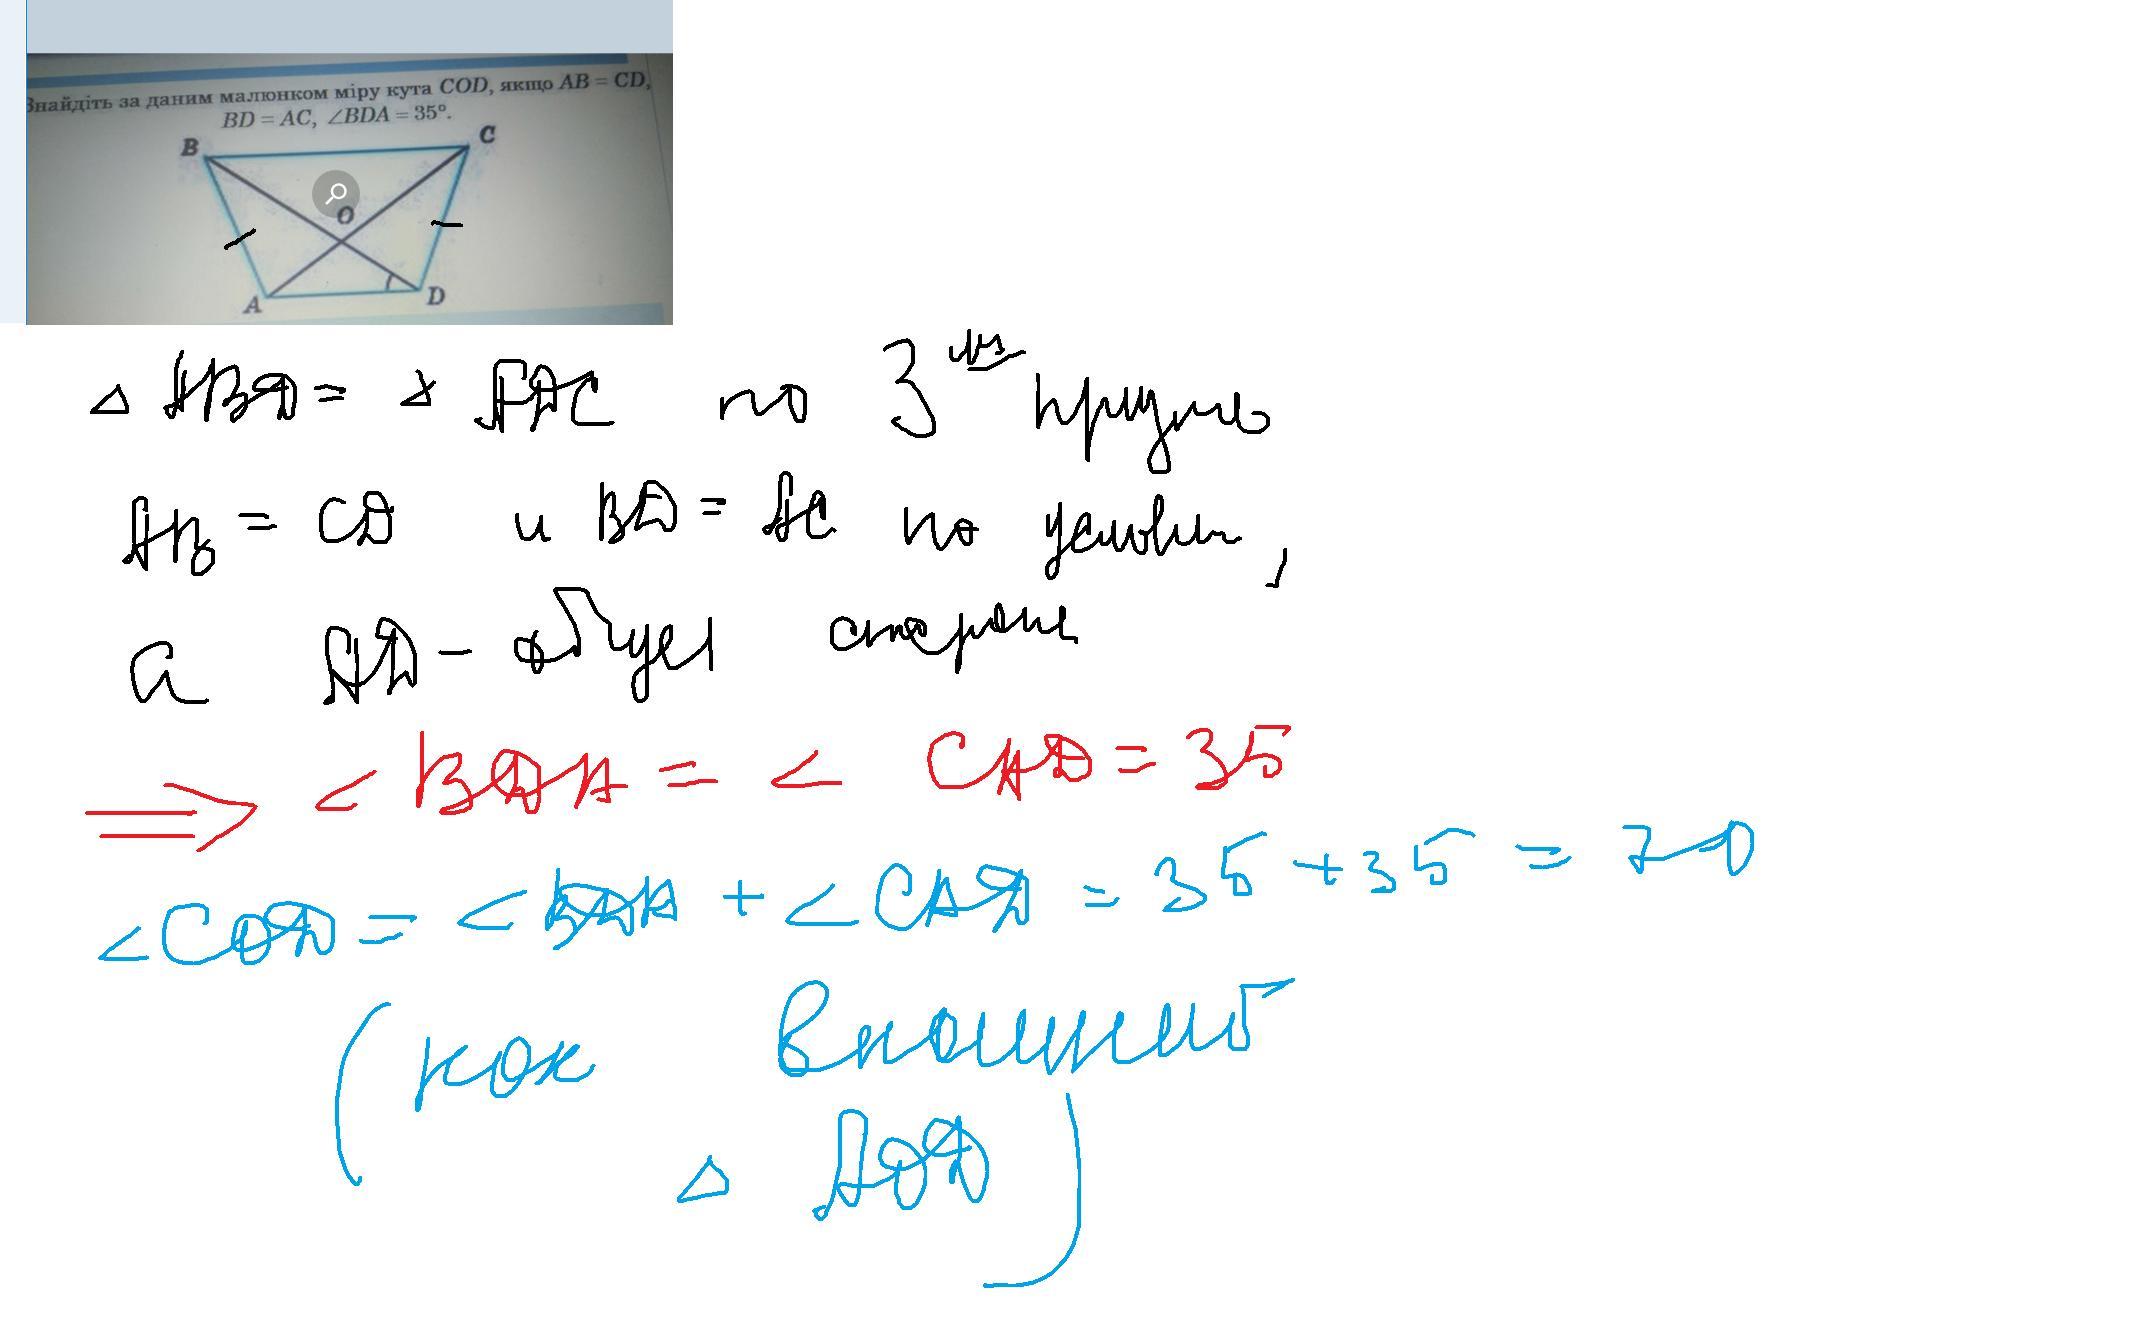 Знайдіть за даним малюнком міру кута COD, якщо AB = CD,
BD = AC, ∠BDA = 35°.
B
C
O
A
D
△ ABD = △ ADC по 3
AB = CD и BD = AC по условию,
а AD - общая сторона
⇒ ∠BDA = ∠CAD = 35
∠COD = ∠BDA + ∠CAD = 35 + 35 = 70
(как внешний
△ AOD)